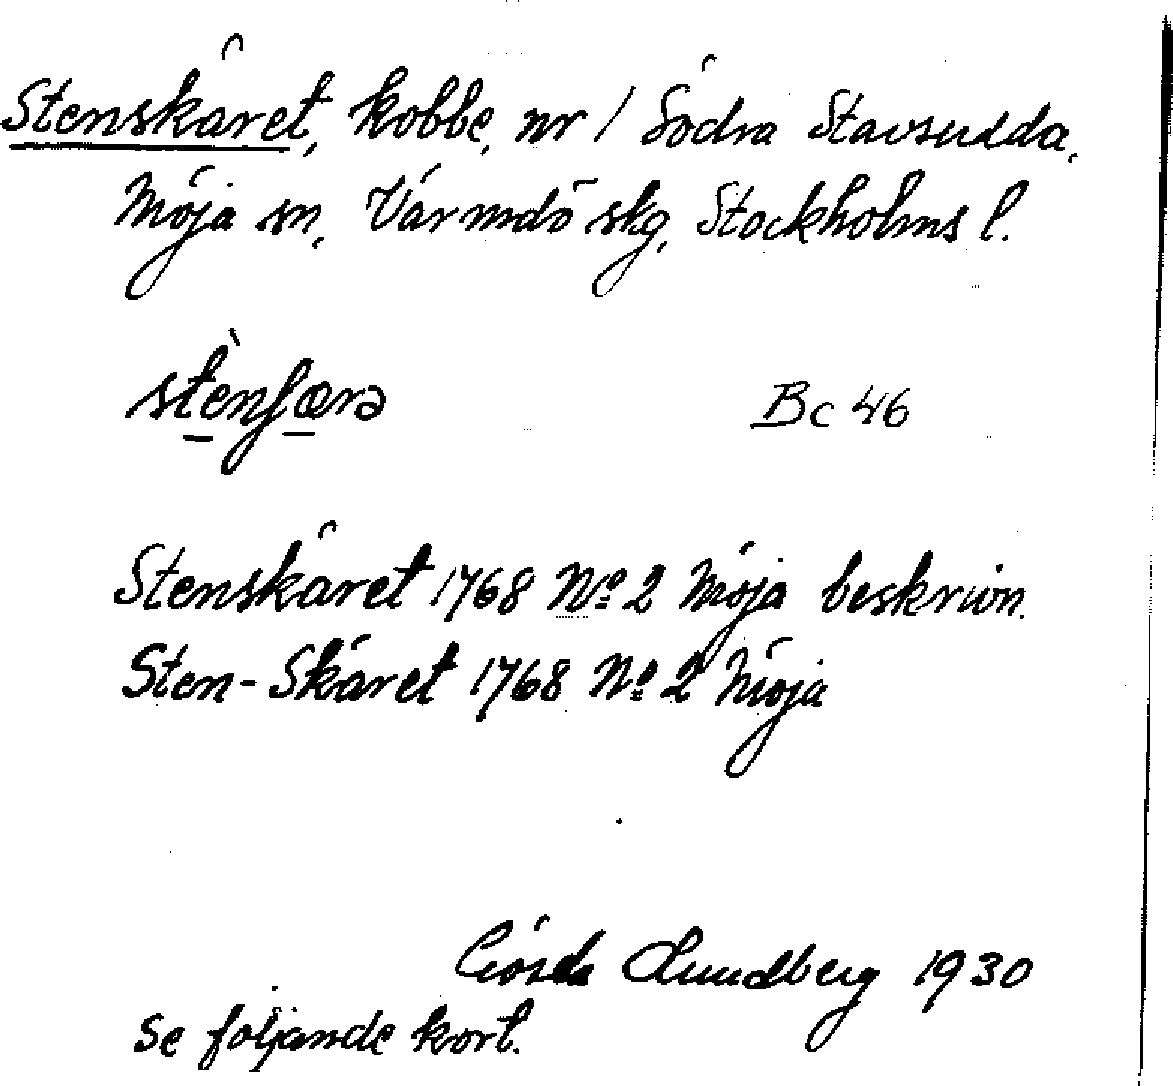 Stenskäret, kobbe, nr 1 Södra Stavsudda,
Möja sn, Värmdö skg, Stockholms l.
stènʃærə Bc 46
Stenskäret 1768 No 2 Möja beskrivn.
Sten-Skäret 1768 No 2 Möja
Gösta Lundberg 1930
Se följande kort.